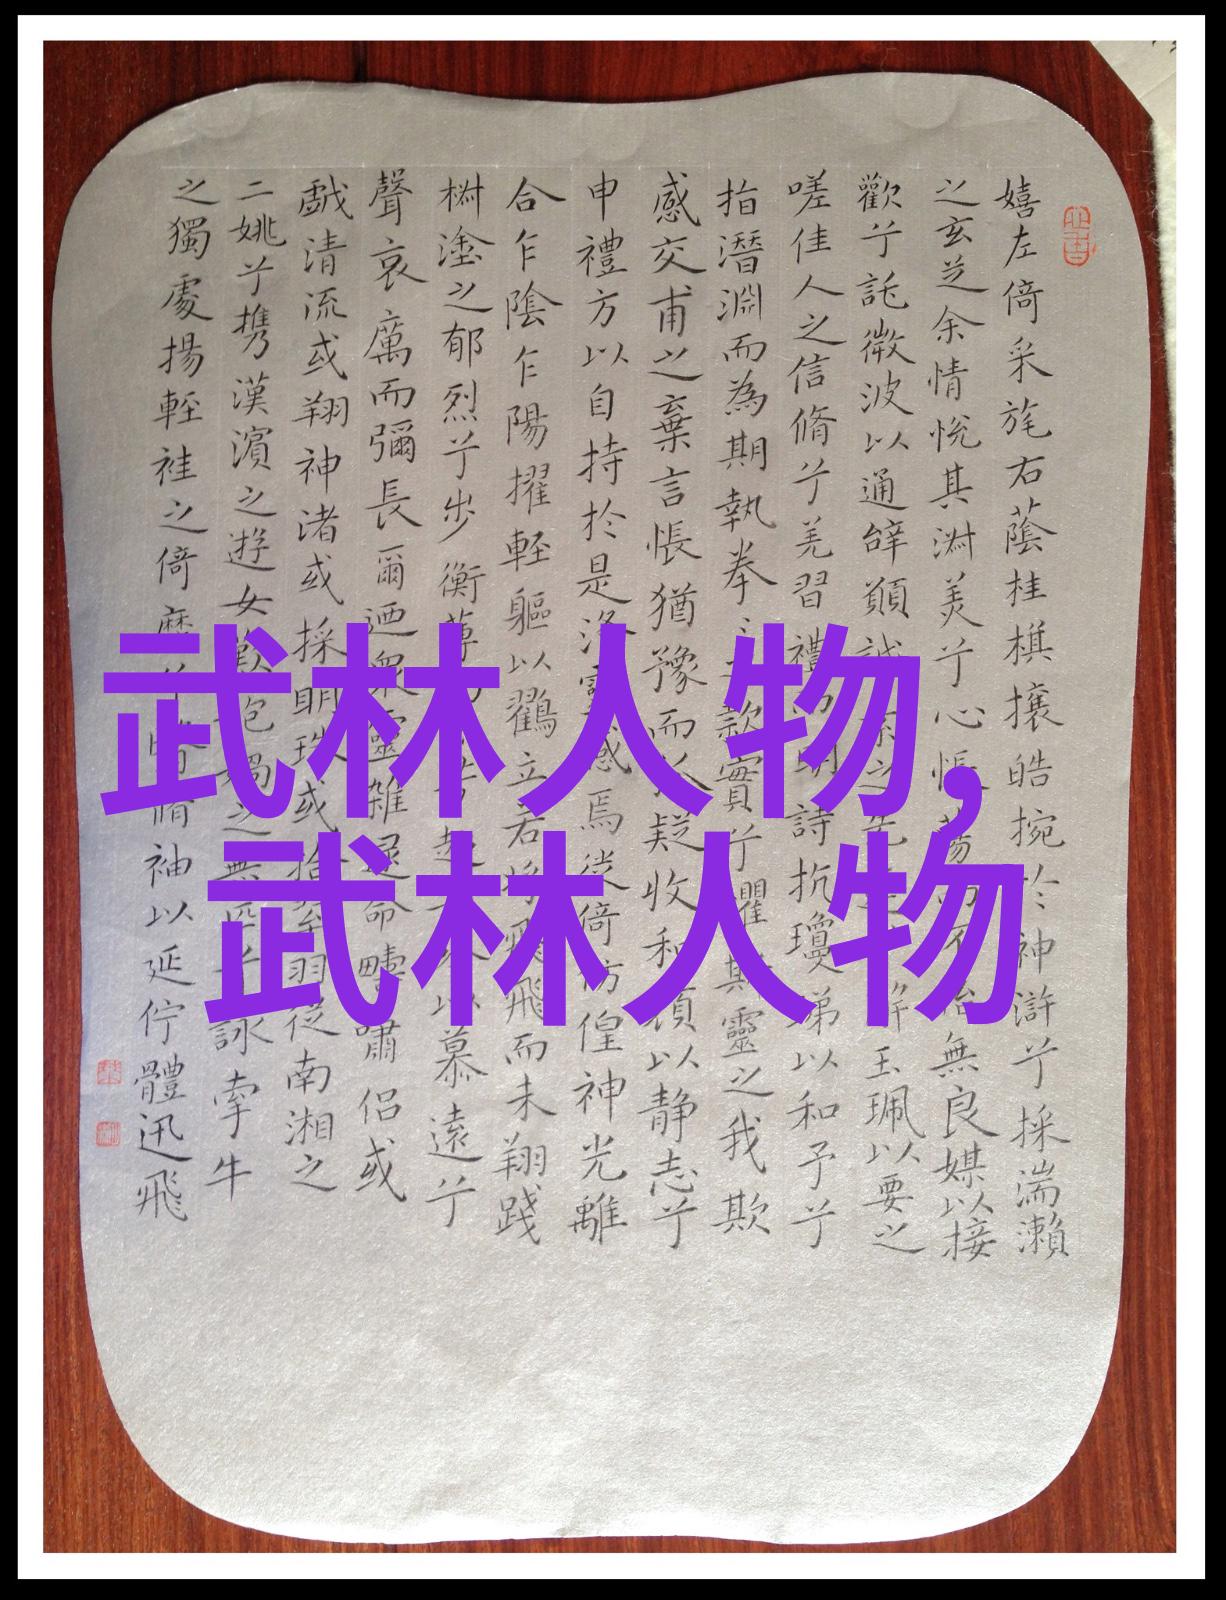 嬉左倚采旄右蔭桂棋攘皓捥於神滸兮採湍瀨
之玄芝余情悅其淑美兮心悵蕩不怡無良媒以接
歡兮託微波以通辭願誠素之先解玉珮以要之
嗟佳人之信脩兮羌習禮明詩抗瓊珶以和予兮
指潛淵而為期執拳之款實兮懼斯靈之我欺
感交甫之棄言悵猶豫而疑收和顏以静志兮
申禮方以自持於是洛靈感焉徙倚彷徨神光離
合乍陰乍陽擢輕軀以鶴立若將飛飛而未翔踐
椒塗之郁烈兮步蘅薄超以慕遠兮
聲哀厲而彌長爾迺眾靈雜遝命疇嘯侶或
戲清流或翔神渚或採明珠或拾翠羽從南湘之
二姚兮携漢濱之遊女歎匏媧之無匹兮詠牽牛
之獨處揚輕袿之倚靡兮脩袖以延佇體迅飛
武林人物,
武林人物